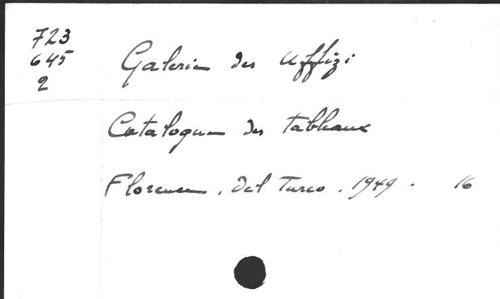 723
645
2
Galerie des Uffizi
Catalogue des tableaux
Florence, Del Turco, 1949. 16